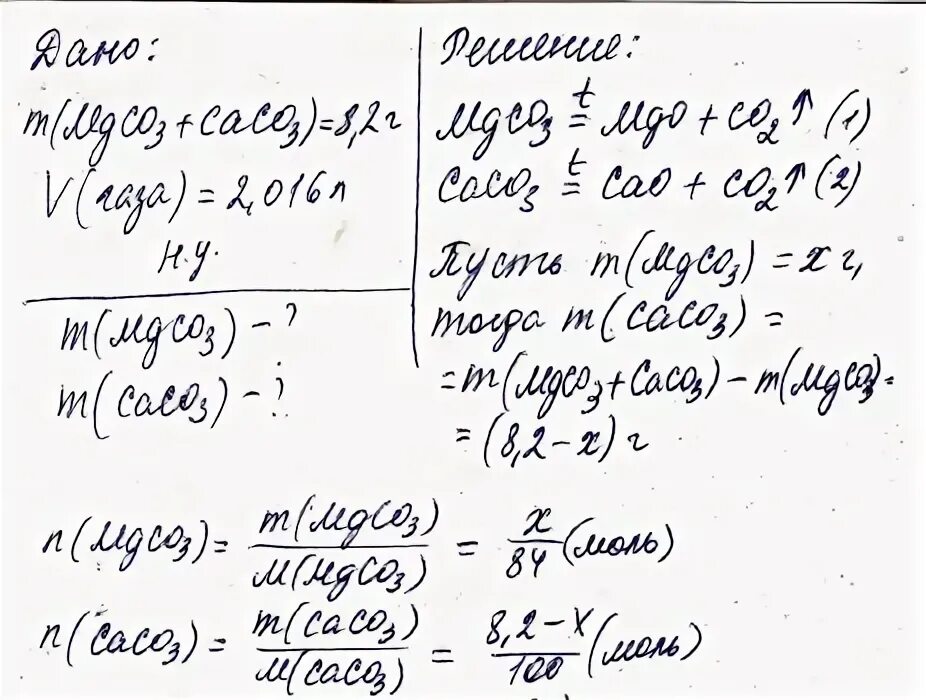 Дано:
m(MgCO3+CaCO3)=8,2г
V(газа)=2,016л
н.у.
m(MgCO3)-?
m(CaCO3)-?
Решение:
MgCO3 t= MgO + CO2↑ (1)
CaCO3 t= CaO + CO2↑ (2)
Пусть m(MgCO3) = x г,
тогда m(CaCO3) =
=m(MgCO3+CaCO3)-m(MgCO3)=
=(8,2-x) г
n(MgCO3) = m(MgCO3)/M(MgCO3) = x/84 (моль)
n(CaCO3) = m(CaCO3)/M(CaCO3) = 8,2-x/100 (моль)